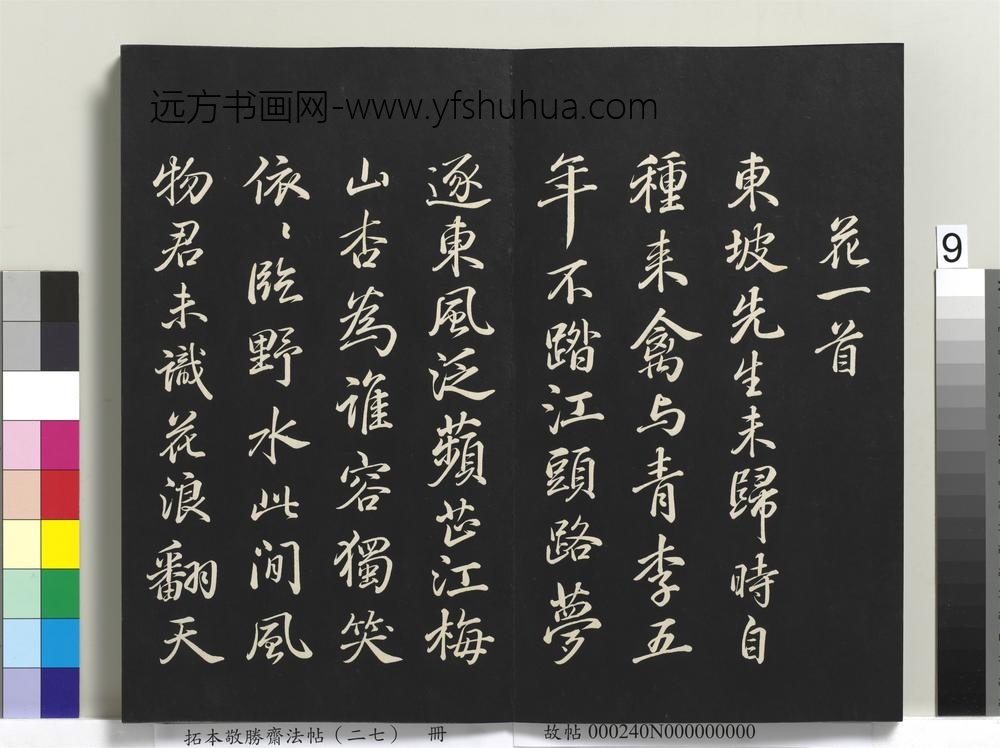 远方书画网-www.yfshuhua.com
花一首
東坡先生未歸時自
種来禽与青李五
年不踏江頭路夢
逐東風泛蘋芷江梅
山杏為誰容獨笑
依〻臨野水此间風
物君未識花浪翻天
9
拓本敬勝齋法帖（二七） 冊
故帖000240N000000000